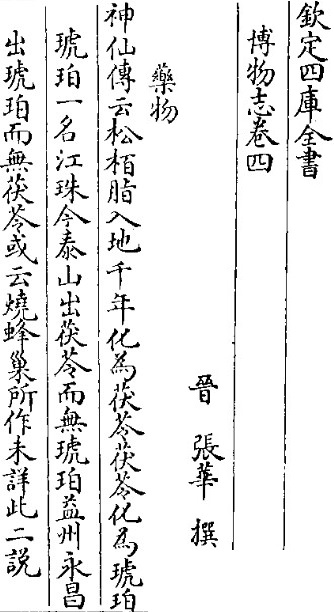 欽定四庫全書
博物志卷四
晉 張華 撰
藥物
神仙傳云松栢脂入地千年化為茯苓茯苓化為琥珀
琥珀一名江珠今泰山出茯苓而無琥珀益州永昌
出琥珀而無茯苓或云燒蜂巢所作未詳此二説